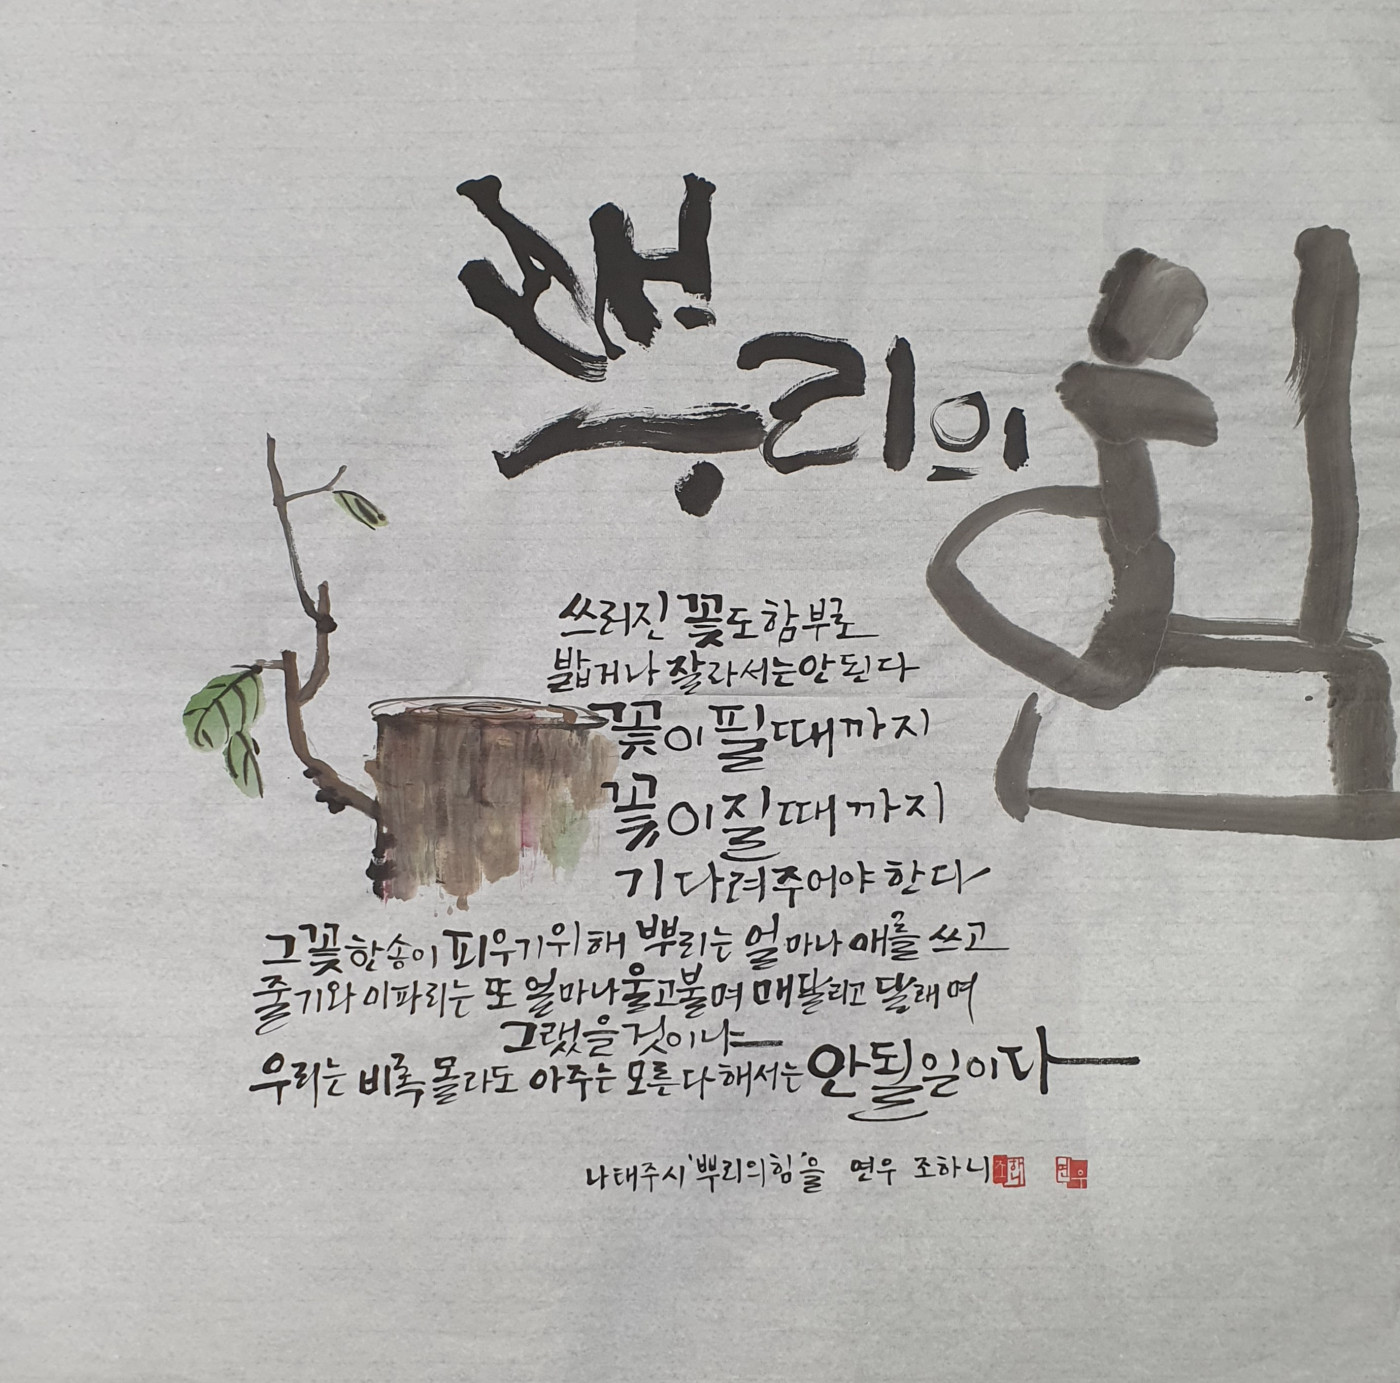 뿌리의 힘
쓰러진 꽃도 함부로
밟거나 잘라서는 안된다
꽃이 필 때까지
꽃이 질 때까지
기다려주어야 한다
그 꽃 한송이 피우기 위해 뿌리는 얼마나 애를 쓰고
줄기와 이파리는 또 얼마나 울고불며 매달리고 달래며
그랬을 것이냐
우리는 비록 몰라도 아주는 모른다 해서는 안될 일이다
나태주시 '뿌리의힘'을 연우 조하니
조하니
연우